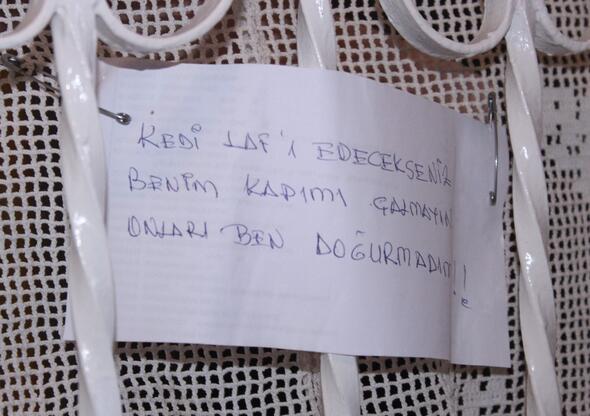 KEDİ LAF'I EDECEKSENİZ
BENİM KAPIMI ÇALMAYIN
ONLARI BEN DOĞURMADIM!!